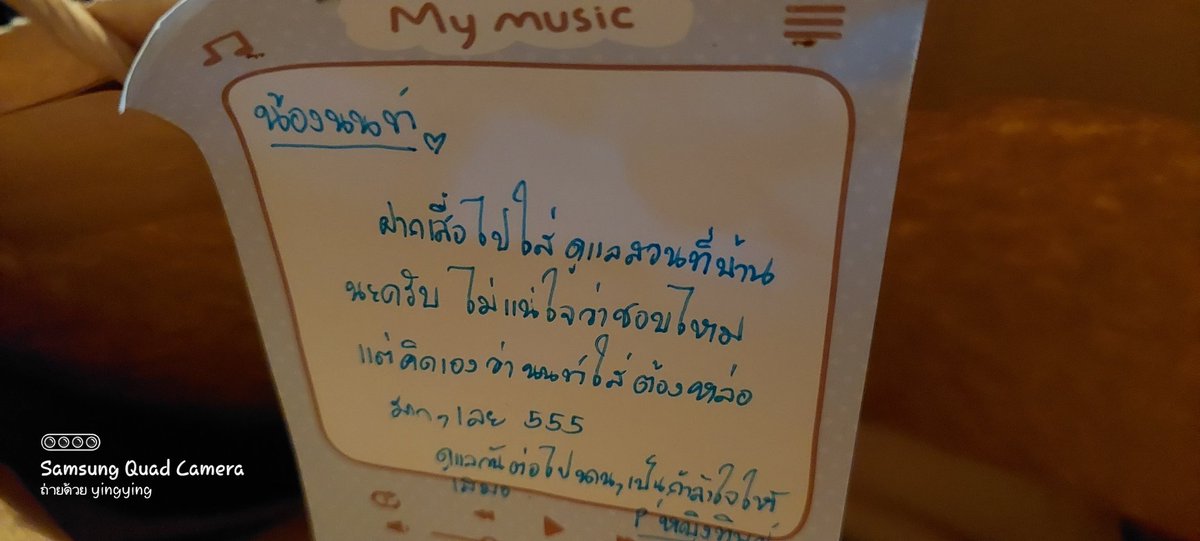 My music
น้องนนท์
ฝากเสื้อไปใส่ ดูแลสวนที่บ้าน
นะครับ ไม่แน่ใจว่าชอบไหม
แต่คิดเองว่านนท์ใส่ต้องหล่อ
มากๆเลย 555
ดูแลกันต่อไปนานๆ เป็นกำลังใจให้
เสมอ
Samsung Quad Camera
ถ่ายด้วย yingying